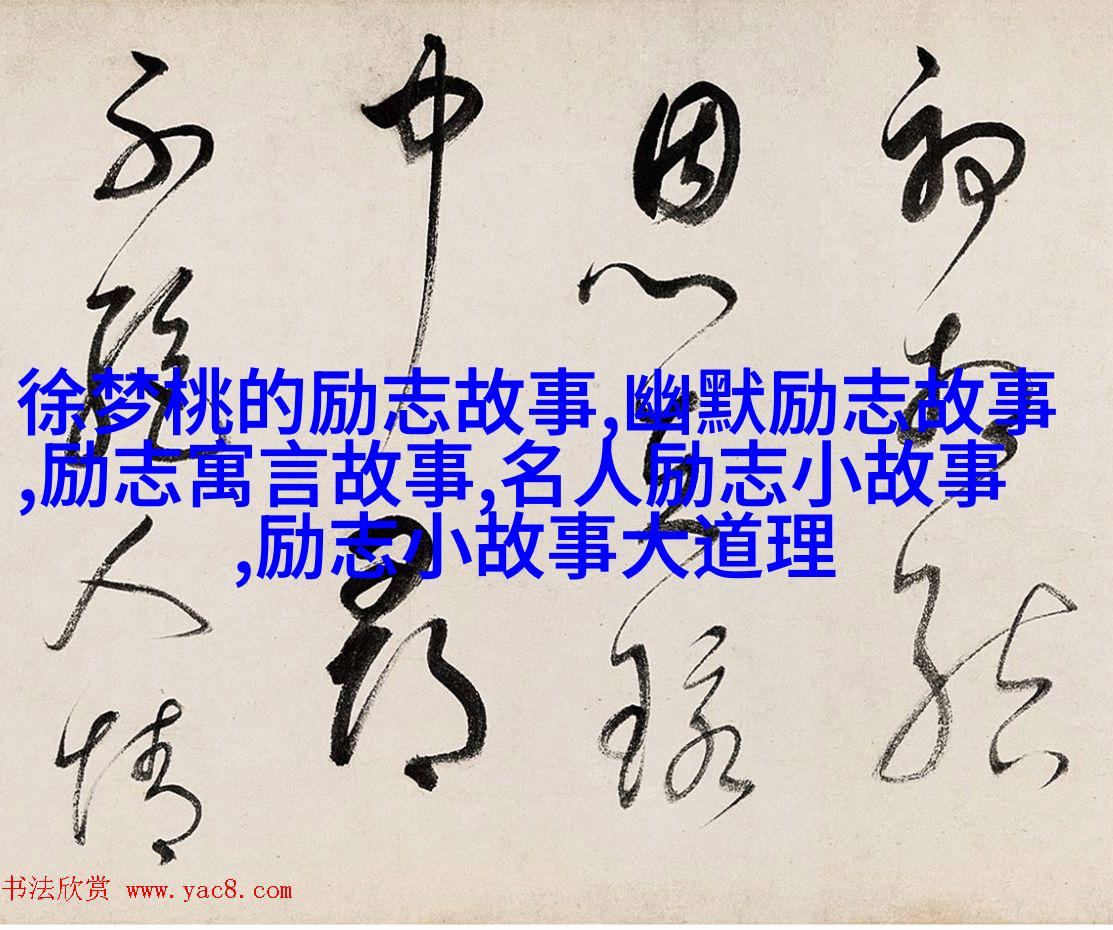 不随人情
中郡
恩
初
徐梦桃的励志故事,幽默励志故事
,励志寓言故事,名人励志小故事
,励志小故事大道理
书法欣赏 www.yac8.com